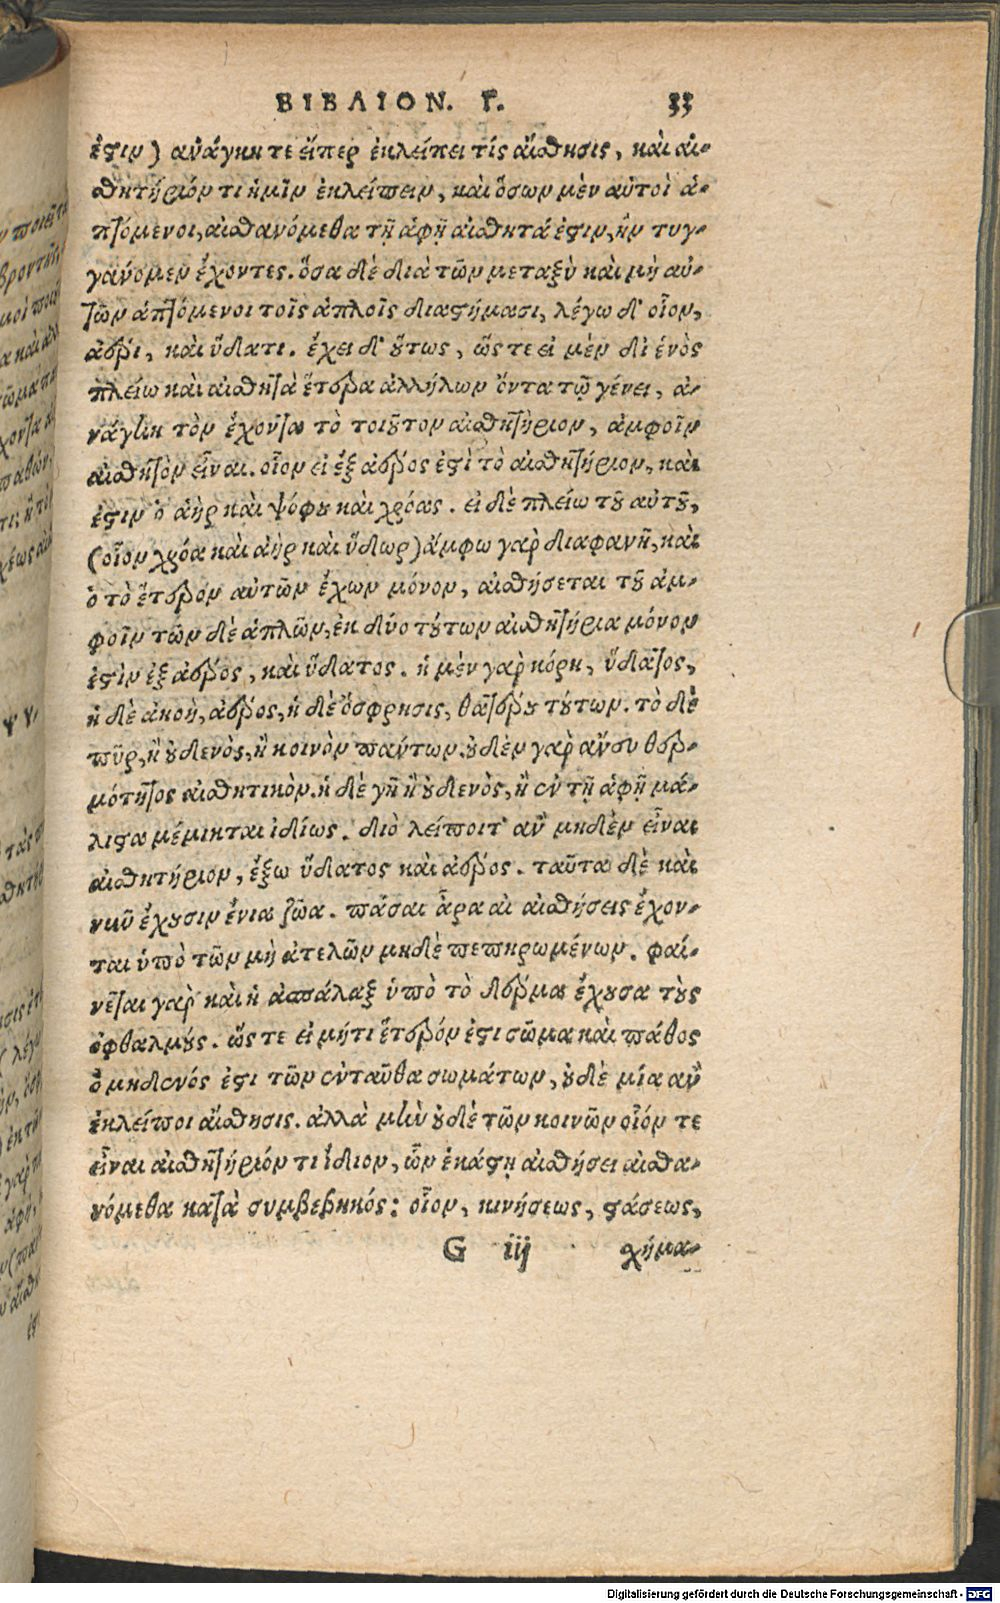 ΒΙΒΛΙΟΝ. Γ. 33
ἐστιν) ἀνάγκη τε εἴπερ ἐκλείπει τίς αἴσθησις, καὶ αἰ-
σθητήριόν τι ἡμῖν ἐκλείπειν, καὶ ὅσων μὲν αὐτοὶ ἁ-
πτόμενοι, αἰσθανόμεθα τῇ ἁφῇ αἰσθητά ἐστιν, ἣν τυγ-
γάνομεν ἔχοντες. ὅσα δὲ διὰ τῶν μεταξὺ καὶ μὴ αὐ-
τῶν ἁπτόμενοι τοῖς ἁπλοῖς διαστήμασι, λέγω δ' οἷον,
ἀέρι, καὶ ὕδατι. ἔχει δ' οὕτως, ὥς τε εἰ μὲν δι ἑνὸς
πλείω καὶ αἰσθητὰ ἕτερα ἀλλήλων ὄντα τῷ γένει, ἀ-
νάγκη τὸν ἔχοντα τὸ τοιοῦτον αἰσθητήριον, ἀμφοῖν
αἰσθητὸν εἶναι. οἷον εἰ ἐξ ἀέρος ἐστὶ τὸ αἰσθητήριον, καὶ
ἐστιν ὁ ἀὴρ καὶ ψόφου καὶ χρόας. εἰ δὲ πλείω τοῦ αὐτοῦ,
(οἷον χρόα καὶ ἀὴρ καὶ ὕδωρ) ἄμφω γὰρ διαφανῆ, καὶ
ὁ τὸ ἕτερόν αὐτῶν ἔχων μόνον, αἰσθήσεται τοῦ ἀμ-
φοῖν τῶν δὲ ἁπλῶν, ἐκ δύο τούτων αἰσθητήρια μόνον
ἐστὶν ἐξ ἀέρος, καὶ ὕδατος. ἡ μὲν γὰρ κόρη, ὕδατος,
ἡ δὲ ἀκοὴ, ἀέρος, ἡ δὲ ὄσφρησις, θατέρου τούτων. τὸ δὲ
πῦρ, ἢ οὐδενὸς, ἢ κοινὸν πάντων. οὐδὲν γὰρ ἄνευ θερ-
μότητος αἰσθητικὸν. ἡ δὲ γῆ ἢ οὐδενὸς, ἢ ἐν τῇ ἁφῇ μά-
λιστα μέμικται ἰδίως. διὸ λείποιτ' ἂν μηδὲν εἶναι
αἰσθητήριον, ἔξω ὕδατος καὶ ἀέρος. ταῦτα δὲ καὶ
νῦν ἔχουσιν ἔνια ζῶα. πᾶσαι ἆρα αἱ αἰσθήσεις ἔχον-
ται ὑπὸ τῶν μὴ ἀτελῶν μηδὲ πεπηρωμένων. φαί-
νεται γὰρ καὶ ἡ ἀσπάλαξ ὑπὸ τὸ δέρμα ἔχουσα τοὺς
ὀφθαλμούς. ὥς τε εἰ μήτι ἕτερόν ἐστι σῶμα καὶ πάθος
ὃ μηδενός ἐστι τῶν ἐνταῦθα σωμάτων, οὐδὲ μία ἂν
ἐκλείποι αἴσθησις. ἀλλὰ μὴν οὐδὲ τῶν κοινῶν οἷόν τε
εἶναι αἰσθητήριόν τι ἴδιον, ὧν ἑκάστῃ αἰσθήσει αἰσθα-
νόμεθα κατὰ συμβεβηκός: οἷον, κινήσεως, στάσεως,
G iij χήμα-
Digitalisierung gefördert durch die Deutsche Forschungsgemeinschaft - DFG